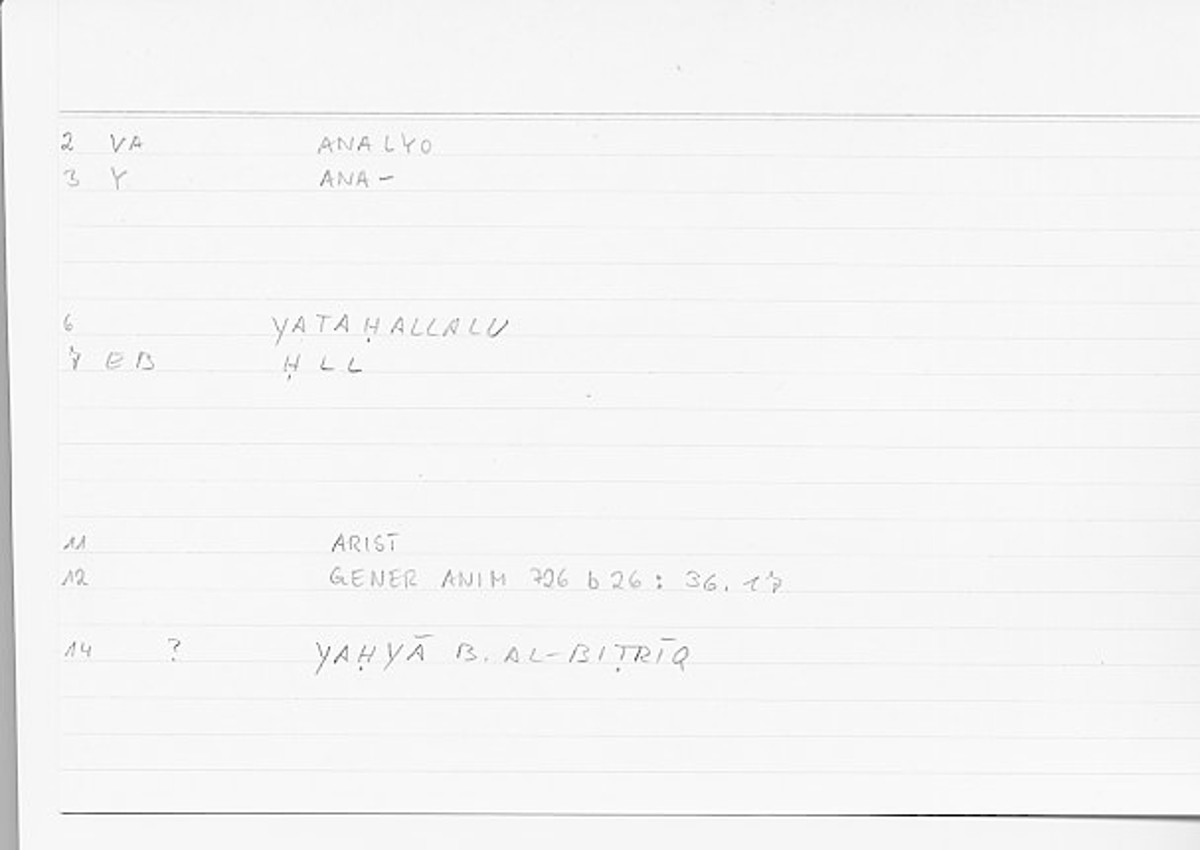 2 VA ANALYO
3 Y ANA-
6 YATAḤALLALU
7 EB ḤLL
11 ARIST
12 GENER ANIM 726 b 26 : 36. 17
14 ? YAḤYĀ B. AL-BIṬRĪQ